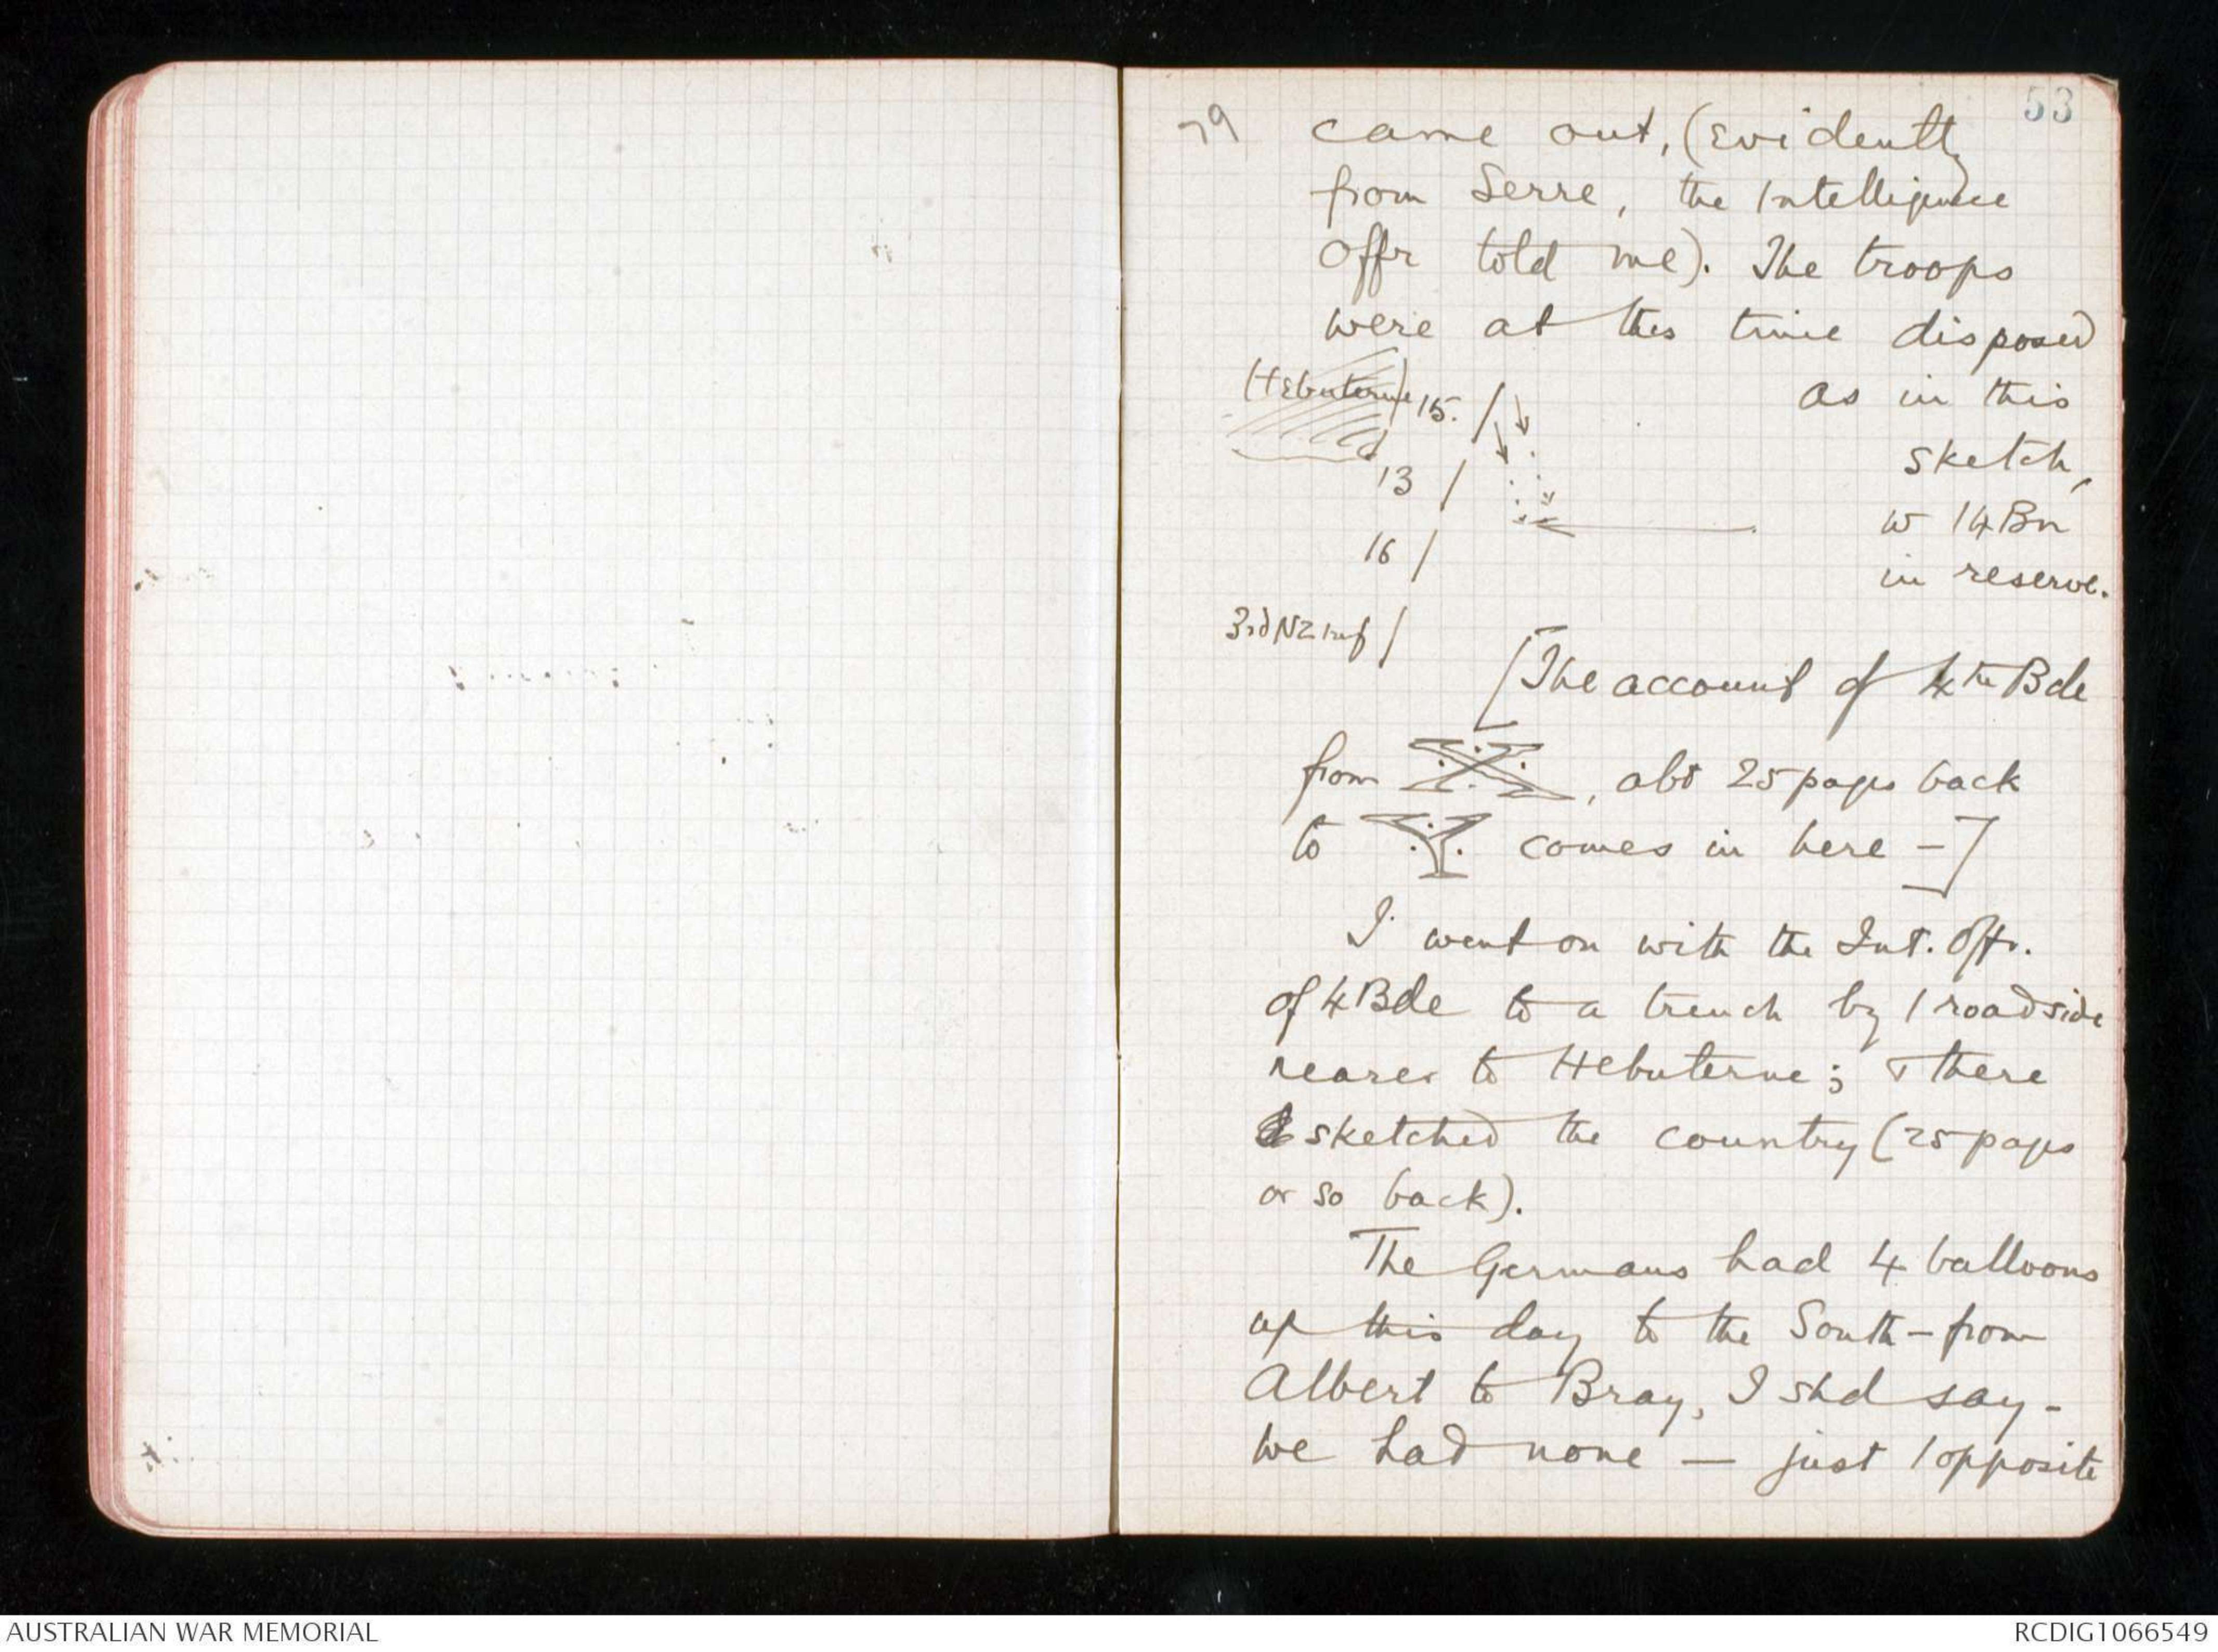 53
79 came out, (evidently
from Serre, the Intelligence
Offr told me). The troops
were at this time disposed
as in this
sketch,
w 14 Bn
in reserve.
(Hebuterne) 15.
13
16
3rd NZ inf
[The account of 4th Bde
from X, abt 25 pages back
to Y comes in here -]
I went on with the Int. Offr.
of 4 Bde to a trench by / roadside
nearer to Hebuterne; & there
sketched the country (25 pages
or so back).
The Germans had 4 balloons
up this day to the South - from
Albert to Bray, I shd say -
we had none - just / opposite
AUSTRALIAN WAR MEMORIAL
RCDIG1066549